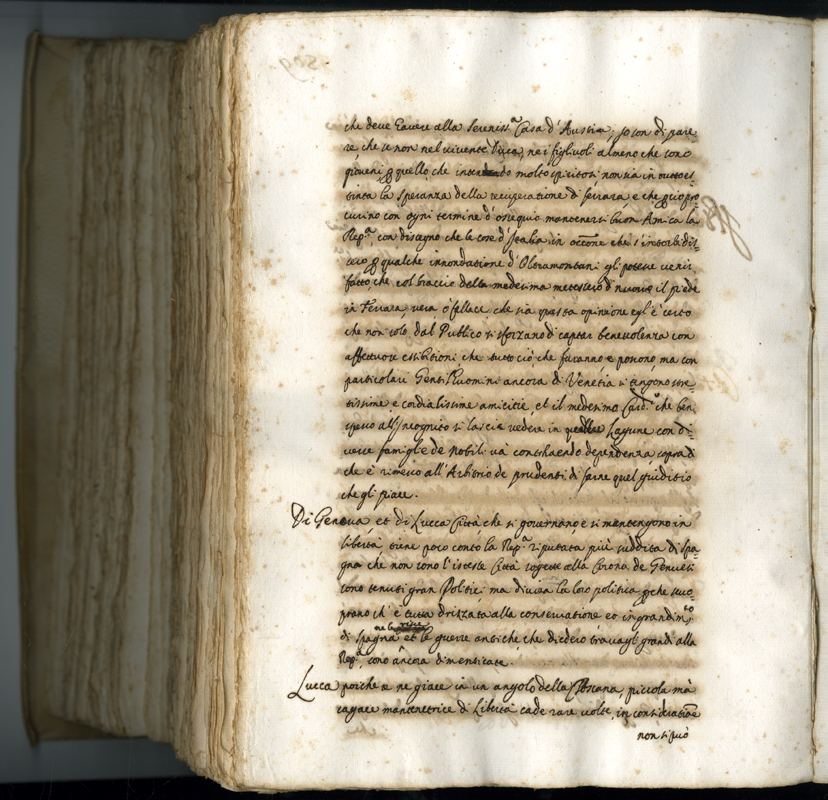 che deve havere alla Sereniss.ª Casa d'Austria, so con di pare
re, che se non nel vivente Duca, ne i figlivoli almeno che sono
gioveni, p quello che intendo molto spiritosi non sia in tutto es-
tinta la speranza della recuperatione di ferrara, e che pciò pro-
curino con ogni termine d'ossequio mantenersi buon Amica la
Rep.ª, con disegno che le cose d'Italia in occōne che s'intorbidis-
sero p qualche innondatione d'Oltramontani gli potesse venir
fatto, che col braccio della medesima mettessero di nuovo il piede
in Ferrara, vera, ò fallace, che sia questa opinione egl'è certo
che non solo dal Publico si sforzano di captar benevolenza con
affettuose essibitioni che tutto ciò che faranno, e possono, ma con
particolari Gentilhuomini ancora di Venetia si tengono stre-
tissime, e cordialissime amicitie, et il medesimo Card.le che ben
spesso all'Incognito si lascia vedere in quelle Lagune con di-
verse famiglie de nobili và contrahendo dependenza, sopra di
che è rimesso all'Arbitrio de prudenti di farne quel giuditio
che gli piace.
Di Genova, et di Lucca Città, che si governano, e si mantengono in
libertà, tiene poco conto la Rep.ª riputata più suddita di Spa-
gna che non sono l'istesse Città sogette alla Corona de Genovesi
sono tenuti gran Politici ma divisa la loro politica pche
ch' è tutta drizzata alla conservatione, et ingrandim.to
ne le
di Spagna et le guerre antiche, che diedero travagli grandi alla
Rep.ª, sono ancora dimenticate.
Lucca poiche se ne giace in un angolo della Toscana, piccola mà
sagace mantenetrice di Libertà cade rare volte in consideratiōe
non si può